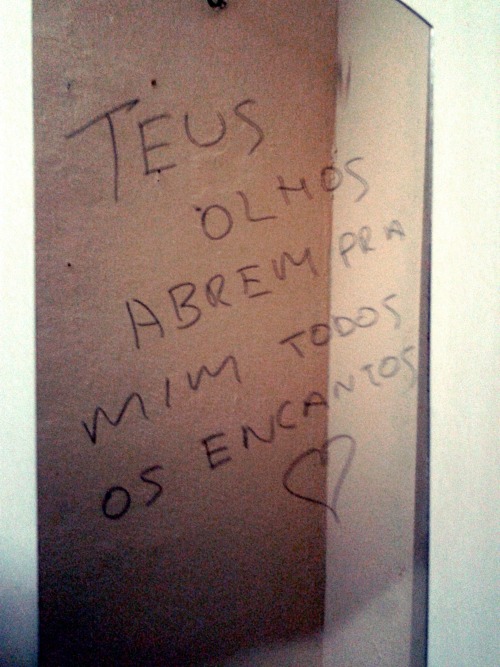 TEUS
OLHOS
ABREM PRA
MIM TODOS
OS ENCANTOS